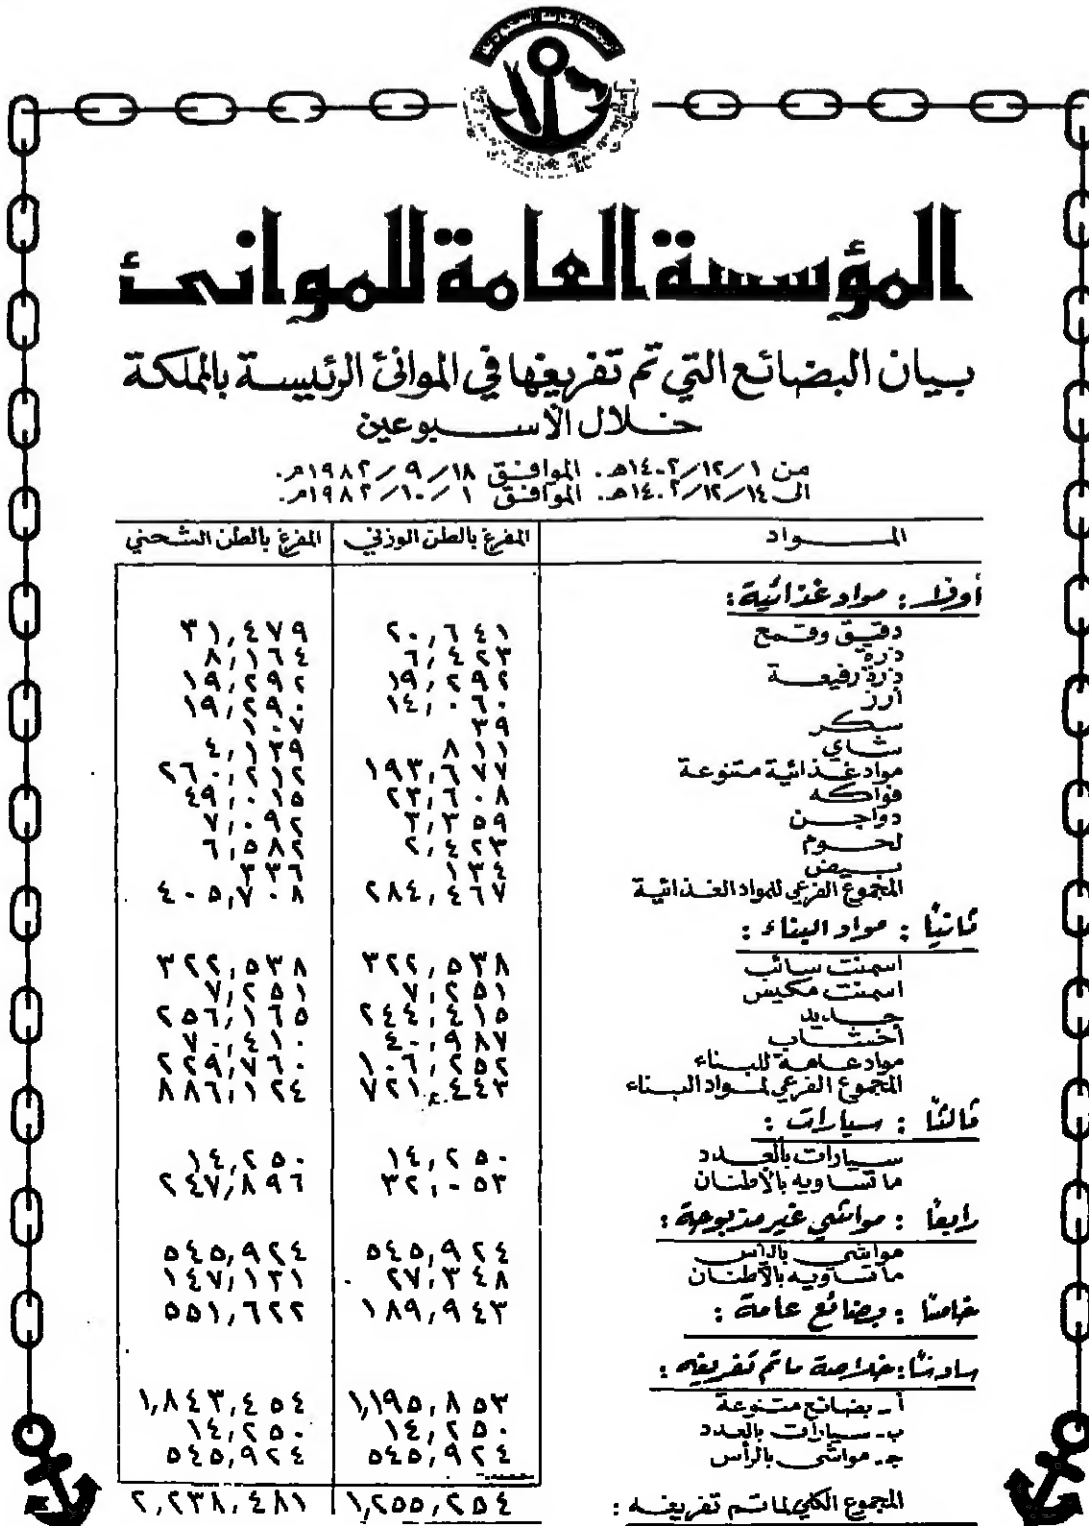 المؤسسة العامة للموانئ
بيان البضائع التي تم تفريغها في الموانئ الرئيسة بالمملكة
خلال الأسبوعين
من ١/١٢/١٤٠٢هـ. الموافق ١٨/٩/١٩٨٢م.
الى ١٤/١٢/١٤٠٢هـ. الموافق ١/١٠/١٩٨٢م.
المـــواد المفرغ بالطن الوزني المفرغ بالطن الشحني
أولاً : مواد غذائية :
دقيق وقمح ٢٠,٦٤١ ٣١,٤٧٩
ذرة ٦,٤٢٣ ٨,١٦٤
ذرة رفيعة ١٩,٢٩٢ ١٩,٢٩٢
أرز ١٤,٠٦٠ ١٩,٢٩٠
سكر ٣٩ ١٠٧
شاي ٨١١ ٤,١٣٩
مواد غذائية متنوعة ١٩٣,٦٧٧ ٢٦٠,٢١٢
فواكه ٢٣,٦٠٨ ٤٩,٠١٥
دواجن ٣,٣٥٩ ٧,٠٩٢
لحوم ٢,٤٢٣ ٦,٥٨٢
بيض ١٣٤ ٣٣٦
المجموع الفرعي للمواد الغذائية ٢٨٤,٤٦٧ ٤٠٥,٧٠٨
ثانياً : مواد البناء :
اسمنت سائب ٣٢٢,٥٣٨ ٣٢٢,٥٣٨
اسمنت مكيس ٧,٢٥١ ٧,٢٥١
حديد ٢٤٤,٤١٥ ٢٥٦,١٦٥
أخشاب ٤٠,٩٨٧ ٧٠,٤١٠
مواد عامة للبناء ١٠٦,٢٥٢ ٢٢٩,٧٦٠
المجموع الفرعي لمواد البناء ٧٢١,٤٤٣ ٨٨٦,١٢٤
ثالثاً : سيارات :
سيارات بالعدد ١٤,٢٥٠ ١٤,٢٥٠
ما تساويه بالأطنان ٣٢,٠٥٣ ٢٤٧,٨٩٦
رابعاً : مواشي غير مذبوحة :
مواشي بالرأس ٥٤٥,٩٢٤ ٥٤٥,٩٢٤
ما تساويه بالأطنان ٢٧,٣٤٨ ١٤٧,١٣١
خامساً : بضائع عامة : ١٨٩,٩٤٣ ٥٥١,٦٢٢
سادساً : خلاصة ماتم تفريغه :
أ - بضائع متنوعة ١,١٩٥,٨٥٣ ١,٨٤٣,٤٥٤
ب - سيارات بالعدد ١٤,٢٥٠ ١٤,٢٥٠
جـ - مواشي بالرأس ٥٤٥,٩٢٤ ٥٤٥,٩٢٤
المجموع الكلي لما تم تفريغه : ١,٢٥٥,٢٥٤ ٢,٢٣٨,٤٨١